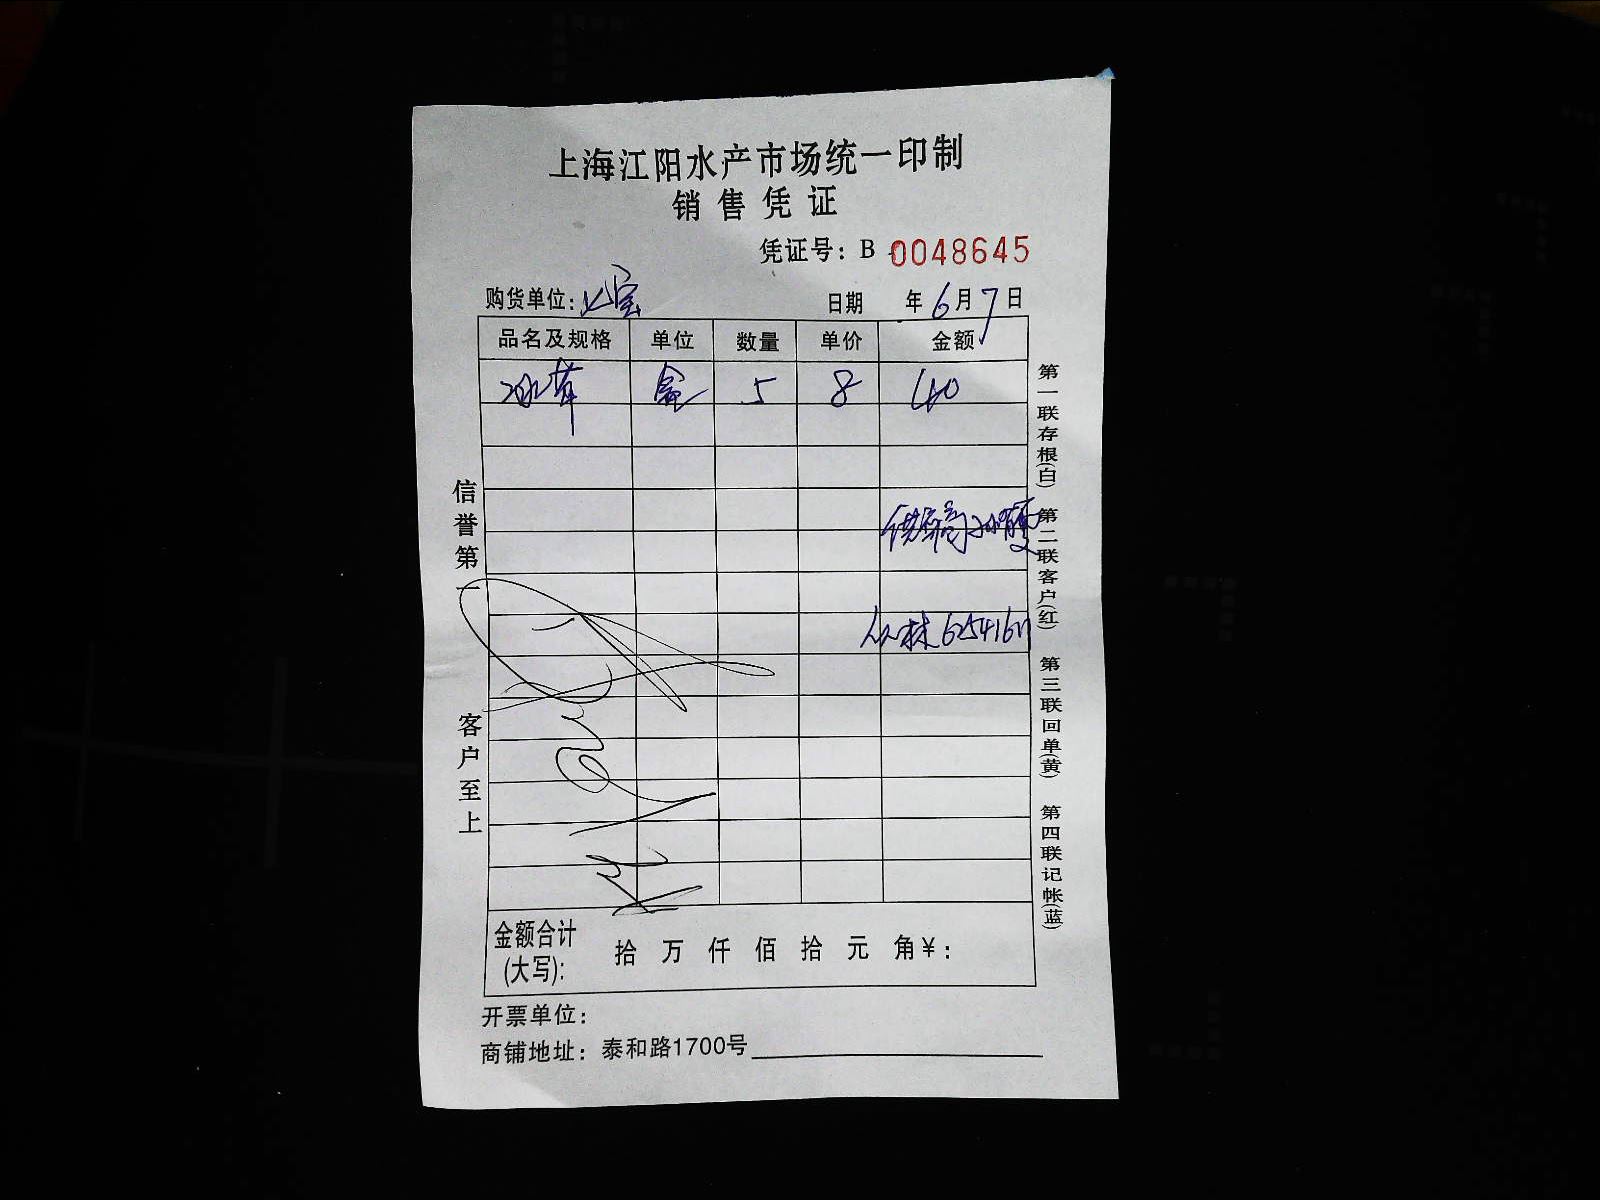 上海江阳水产市场统一印制
销售凭证
凭证号：B 0048645
购货单位： 日期 年 6 月 7 日
品名及规格 单位 数量 单价 金额
冰草 盒 5 8 40
信誉第一
客户至上
第一联存根(白) 第二联客户(红) 第三联回单(黄) 第四联记帐(蓝)
金额合计(大写)： 拾 万 仟 佰 拾 元 角 ¥：
开票单位：
商铺地址：泰和路1700号